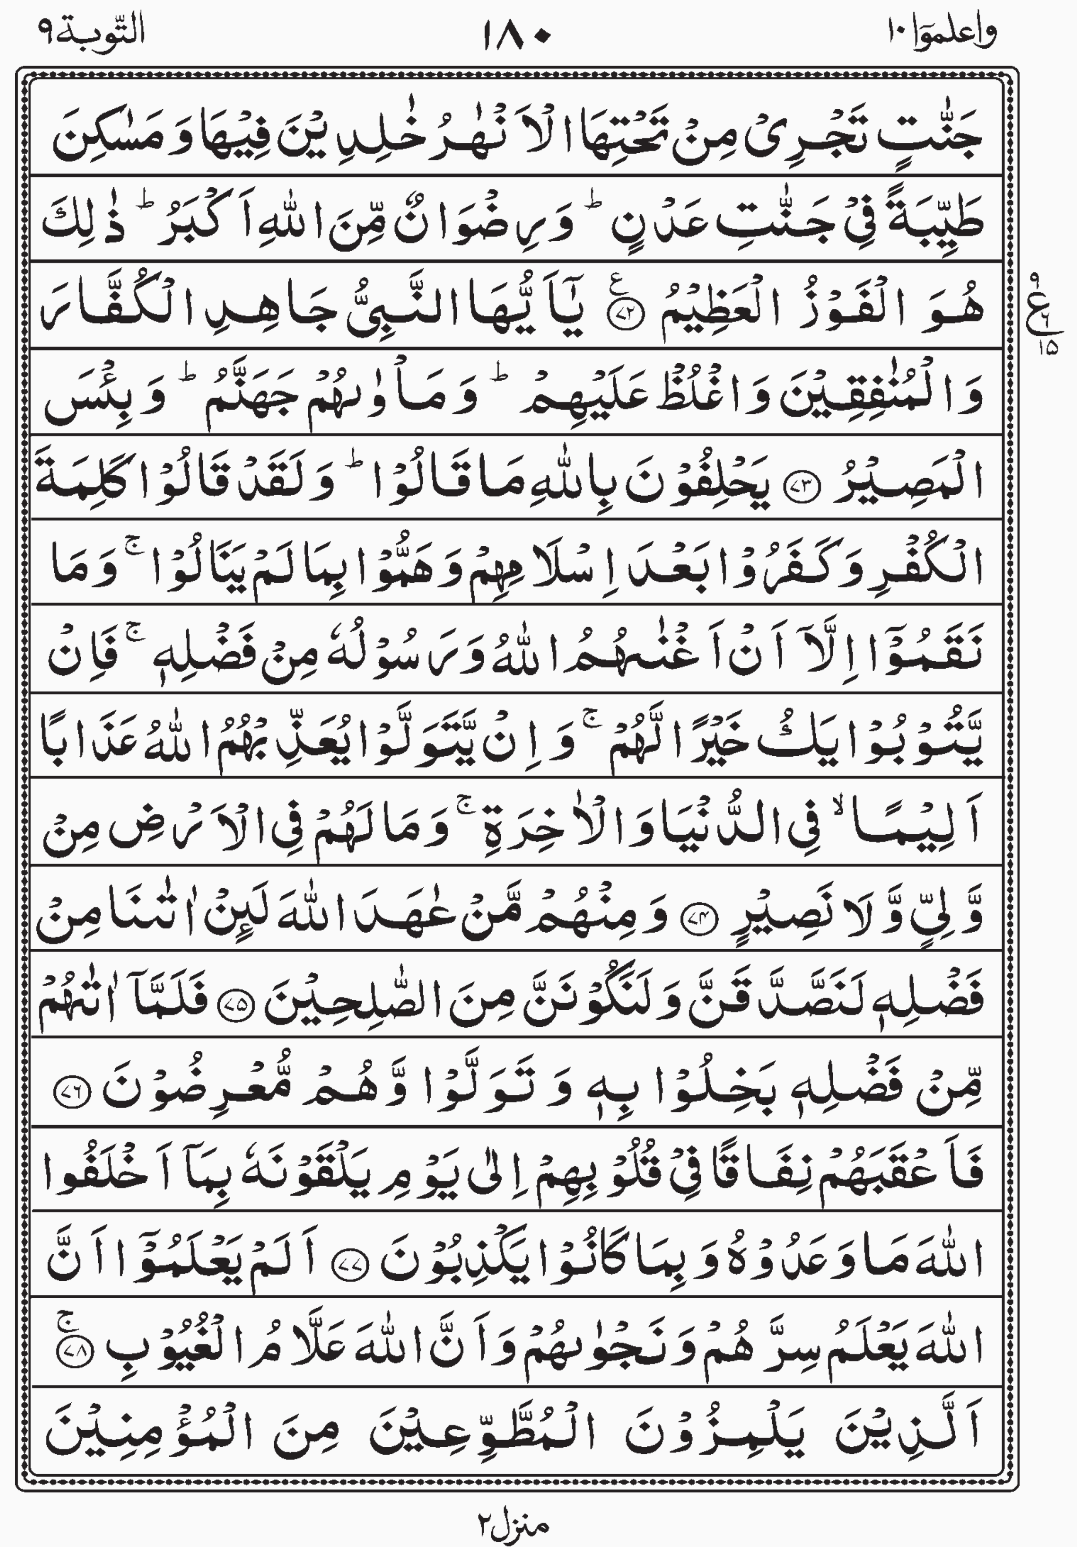 واعلموٓا ١٠ ١٨٠ التّوبة ٩
جَنّٰتٍ تَجْرِیْ مِنْ تَحْتِهَا الْاَنْهٰرُ خٰلِدِیْنَ فِیْهَا وَ مَسٰكِنَ
طَیِّبَةً فِیْ جَنّٰتِ عَدْنٍ ؕ وَ رِضْوَانٌ مِّنَ اللّٰهِ اَكْبَرُ ؕ ذٰلِكَ
هُوَ الْفَوْزُ الْعَظِیْمُ ۟ع ﴿۷۲﴾ یٰۤاَیُّهَا النَّبِیُّ جَاهِدِ الْكُفَّارَ
وَ الْمُنٰفِقِیْنَ وَ اغْلُظْ عَلَیْهِمْ ؕ وَ مَاْوٰىهُمْ جَهَنَّمُ ؕ وَ بِئْسَ
الْمَصِیْرُ ﴿۷۳﴾ یَحْلِفُوْنَ بِاللّٰهِ مَا قَالُوْا ؕ وَ لَقَدْ قَالُوْا كَلِمَةَ
الْكُفْرِ وَ كَفَرُوْا بَعْدَ اِسْلَامِهِمْ وَ هَمُّوْا بِمَا لَمْ یَنَالُوْا ۚ وَ مَا
نَقَمُوْۤا اِلَّاۤ اَنْ اَغْنٰىهُمُ اللّٰهُ وَ رَسُوْلُهٗ مِنْ فَضْلِهٖ ۚ فَاِنْ
یَّتُوْبُوْا یَكُ خَیْرًا لَّهُمْ ۚ وَ اِنْ یَّتَوَلَّوْا یُعَذِّبْهُمُ اللّٰهُ عَذَابًا
اَلِیْمًا ۙ فِی الدُّنْیَا وَ الْاٰخِرَةِ ۚ وَ مَا لَهُمْ فِی الْاَرْضِ مِنْ
وَّلِیٍّ وَّ لَا نَصِیْرٍ ﴿۷۴﴾ وَ مِنْهُمْ مَّنْ عٰهَدَ اللّٰهَ لَىِٕنْ اٰتٰىنَا مِنْ
فَضْلِهٖ لَنَصَّدَّقَنَّ وَ لَنَكُوْنَنَّ مِنَ الصّٰلِحِیْنَ ﴿۷۵﴾ فَلَمَّاۤ اٰتٰىهُمْ
مِّنْ فَضْلِهٖ بَخِلُوْا بِهٖ وَ تَوَلَّوْا وَّ هُمْ مُّعْرِضُوْنَ ﴿۷۶﴾
فَاَعْقَبَهُمْ نِفَاقًا فِیْ قُلُوْبِهِمْ اِلٰى یَوْمِ یَلْقَوْنَهٗ بِمَاۤ اَخْلَفُوا
اللّٰهَ مَا وَعَدُوْهُ وَ بِمَا كَانُوْا یَكْذِبُوْنَ ﴿۷۷﴾ اَلَمْ یَعْلَمُوْۤا اَنَّ
اللّٰهَ یَعْلَمُ سِرَّهُمْ وَ نَجْوٰىهُمْ وَ اَنَّ اللّٰهَ عَلَّامُ الْغُیُوْبِ ۚ﴿۷۸﴾
اَلَّذِیْنَ یَلْمِزُوْنَ الْمُطَّوِّعِیْنَ مِنَ الْمُؤْمِنِیْنَ
۹
ع
۶
۱۵
منزل۲